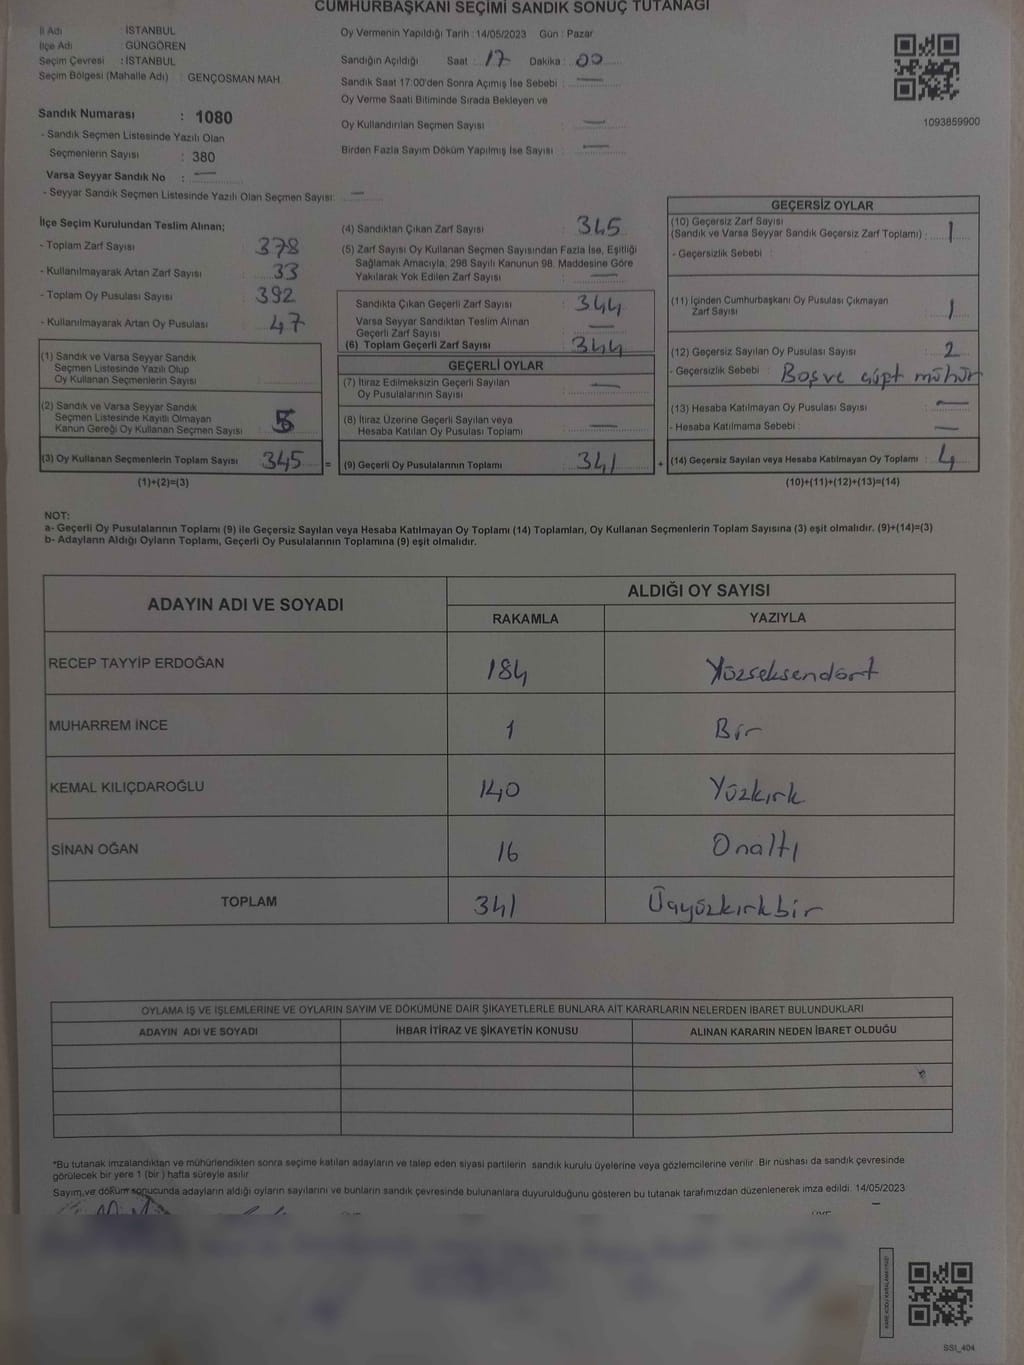 CUMHURBAŞKANI SEÇİMİ SANDIK SONUÇ TUTANAĞI
İl Adı : İSTANBUL
İlçe Adı : GÜNGÖREN
Seçim Çevresi : İSTANBUL
Seçim Bölgesi (Mahalle Adı) : GENÇOSMAN MAH.
Oy Vermenin Yapıldığı Tarih : 14/05/2023 Gün : Pazar
Sandığın Açıldığı Saat : 17 Dakika : 00
Sandık Saat 17:00'den Sonra Açımış İse Sebebi : —
Oy Verme Saati Bitiminde Sırada Bekleyen ve
Oy Kullandırılan Seçmen Sayısı : —
Birden Fazla Sayım Döküm Yapılmış İse Sayısı : —
1093859900
Sandık Numarası : 1080
- Sandık Seçmen Listesinde Yazılı Olan
Seçmenlerin Sayısı : 380
Varsa Seyyar Sandık No : —
- Seyyar Sandık Seçmen Listesinde Yazılı Olan Seçmen Sayısı: —
İlçe Seçim Kurulundan Teslim Alınan;
- Toplam Zarf Sayısı : 378
- Kullanılmayarak Artan Zarf Sayısı : 33
- Toplam Oy Pusulası Sayısı : 392
- Kullanılmayarak Artan Oy Pusulası : 47
(1) Sandık ve Varsa Seyyar Sandık
Seçmen Listesinde Yazılı Olup
Oy Kullanan Seçmenlerin Sayısı :
(2) Sandık ve Varsa Seyyar Sandık
Seçmen Listesinde Kayıtlı Olmayan
Kanun Gereği Oy Kullanan Seçmen Sayısı : 5
(3) Oy Kullanan Seçmenlerin Toplam Sayısı : 345 =
(1)+(2)=(3)
(4) Sandıktan Çıkan Zarf Sayısı : 345
(5) Zarf Sayısı Oy Kullanan Seçmen Sayısından Fazla İse, Eşitliği
Sağlamak Amacıyla; 298 Sayılı Kanunun 98. Maddesine Göre
Yakılarak Yok Edilen Zarf Sayısı : —
Sandıkta Çıkan Geçerli Zarf Sayısı : 344
Varsa Seyyar Sandıktan Teslim Alınan
Geçerli Zarf Sayısı : —
(6) Toplam Geçerli Zarf Sayısı : 344
GEÇERLİ OYLAR
(7) İtiraz Edilmeksizin Geçerli Sayılan
Oy Pusulalarının Sayısı : —
(8) İtiraz Üzerine Geçerli Sayılan veya
Hesaba Katılan Oy Pusulası Toplamı : —
(9) Geçerli Oy Pusulalarının Toplamı : 341 +
GEÇERSİZ OYLAR
(10) Geçersiz Zarf Sayısı
(Sandık ve Varsa Seyyar Sandık Geçersiz Zarf Toplamı) : 1
- Geçersizlik Sebebi :
(11) İçinden Cumhurbaşkanı Oy Pusulası Çıkmayan
Zarf Sayısı : 1
(12) Geçersiz Sayılan Oy Pusulası Sayısı : 2
- Geçersizlik Sebebi : Boş ve çift mühür
(13) Hesaba Katılmayan Oy Pusulası Sayısı : —
- Hesaba Katılmama Sebebi : —
(14) Geçersiz Sayılan veya Hesaba Katılmayan Oy Toplamı : 4
(10)+(11)+(12)+(13)=(14)
NOT:
a- Geçerli Oy Pusulalarının Toplamı (9) ile Geçersiz Sayılan veya Hesaba Katılmayan Oy Toplamı (14) Toplamları, Oy Kullanan Seçmenlerin Toplam Sayısına (3) eşit olmalıdır. (9)+(14)=(3)
b- Adayların Aldığı Oyların Toplamı, Geçerli Oy Pusulalarının Toplamına (9) eşit olmalıdır.
ADAYIN ADI VE SOYADI
ALDIĞI OY SAYISI
RAKAMLA YAZIYLA
RECEP TAYYİP ERDOĞAN 184 Yüzseksendört
MUHARREM İNCE 1 Bir
KEMAL KILIÇDAROĞLU 140 Yüzkırk
SİNAN OĞAN 16 Onaltı
TOPLAM 341 Üçyüzkırkbir
OYLAMA İŞ VE İŞLEMLERİNE VE OYLARIN SAYIM VE DÖKÜMÜNE DAİR ŞİKAYETLERLE BUNLARA AİT KARARLARIN NELERDEN İBARET BULUNDUKLARI
ADAYIN ADI VE SOYADI İHBAR İTİRAZ VE ŞİKAYETİN KONUSU ALINAN KARARIN NEDEN İBARET OLDUĞU
*Bu tutanak imzalandıktan ve mühürlendikten sonra seçime katılan adayların ve talep eden siyasi partilerin sandık kurulu üyelerine veya gözlemcilerine verilir. Bir nüshası da sandık çevresinde
görülecek bir yere 1 (bir) hafta süreyle asılır
Sayım ve döküm sonucunda adayların aldığı oyların sayılarını ve bunların sandık çevresinde bulunanlara duyurulduğunu gösteren bu tutanak tarafımızdan düzenlenerek imza edildi. 14/05/2023
SSI_404